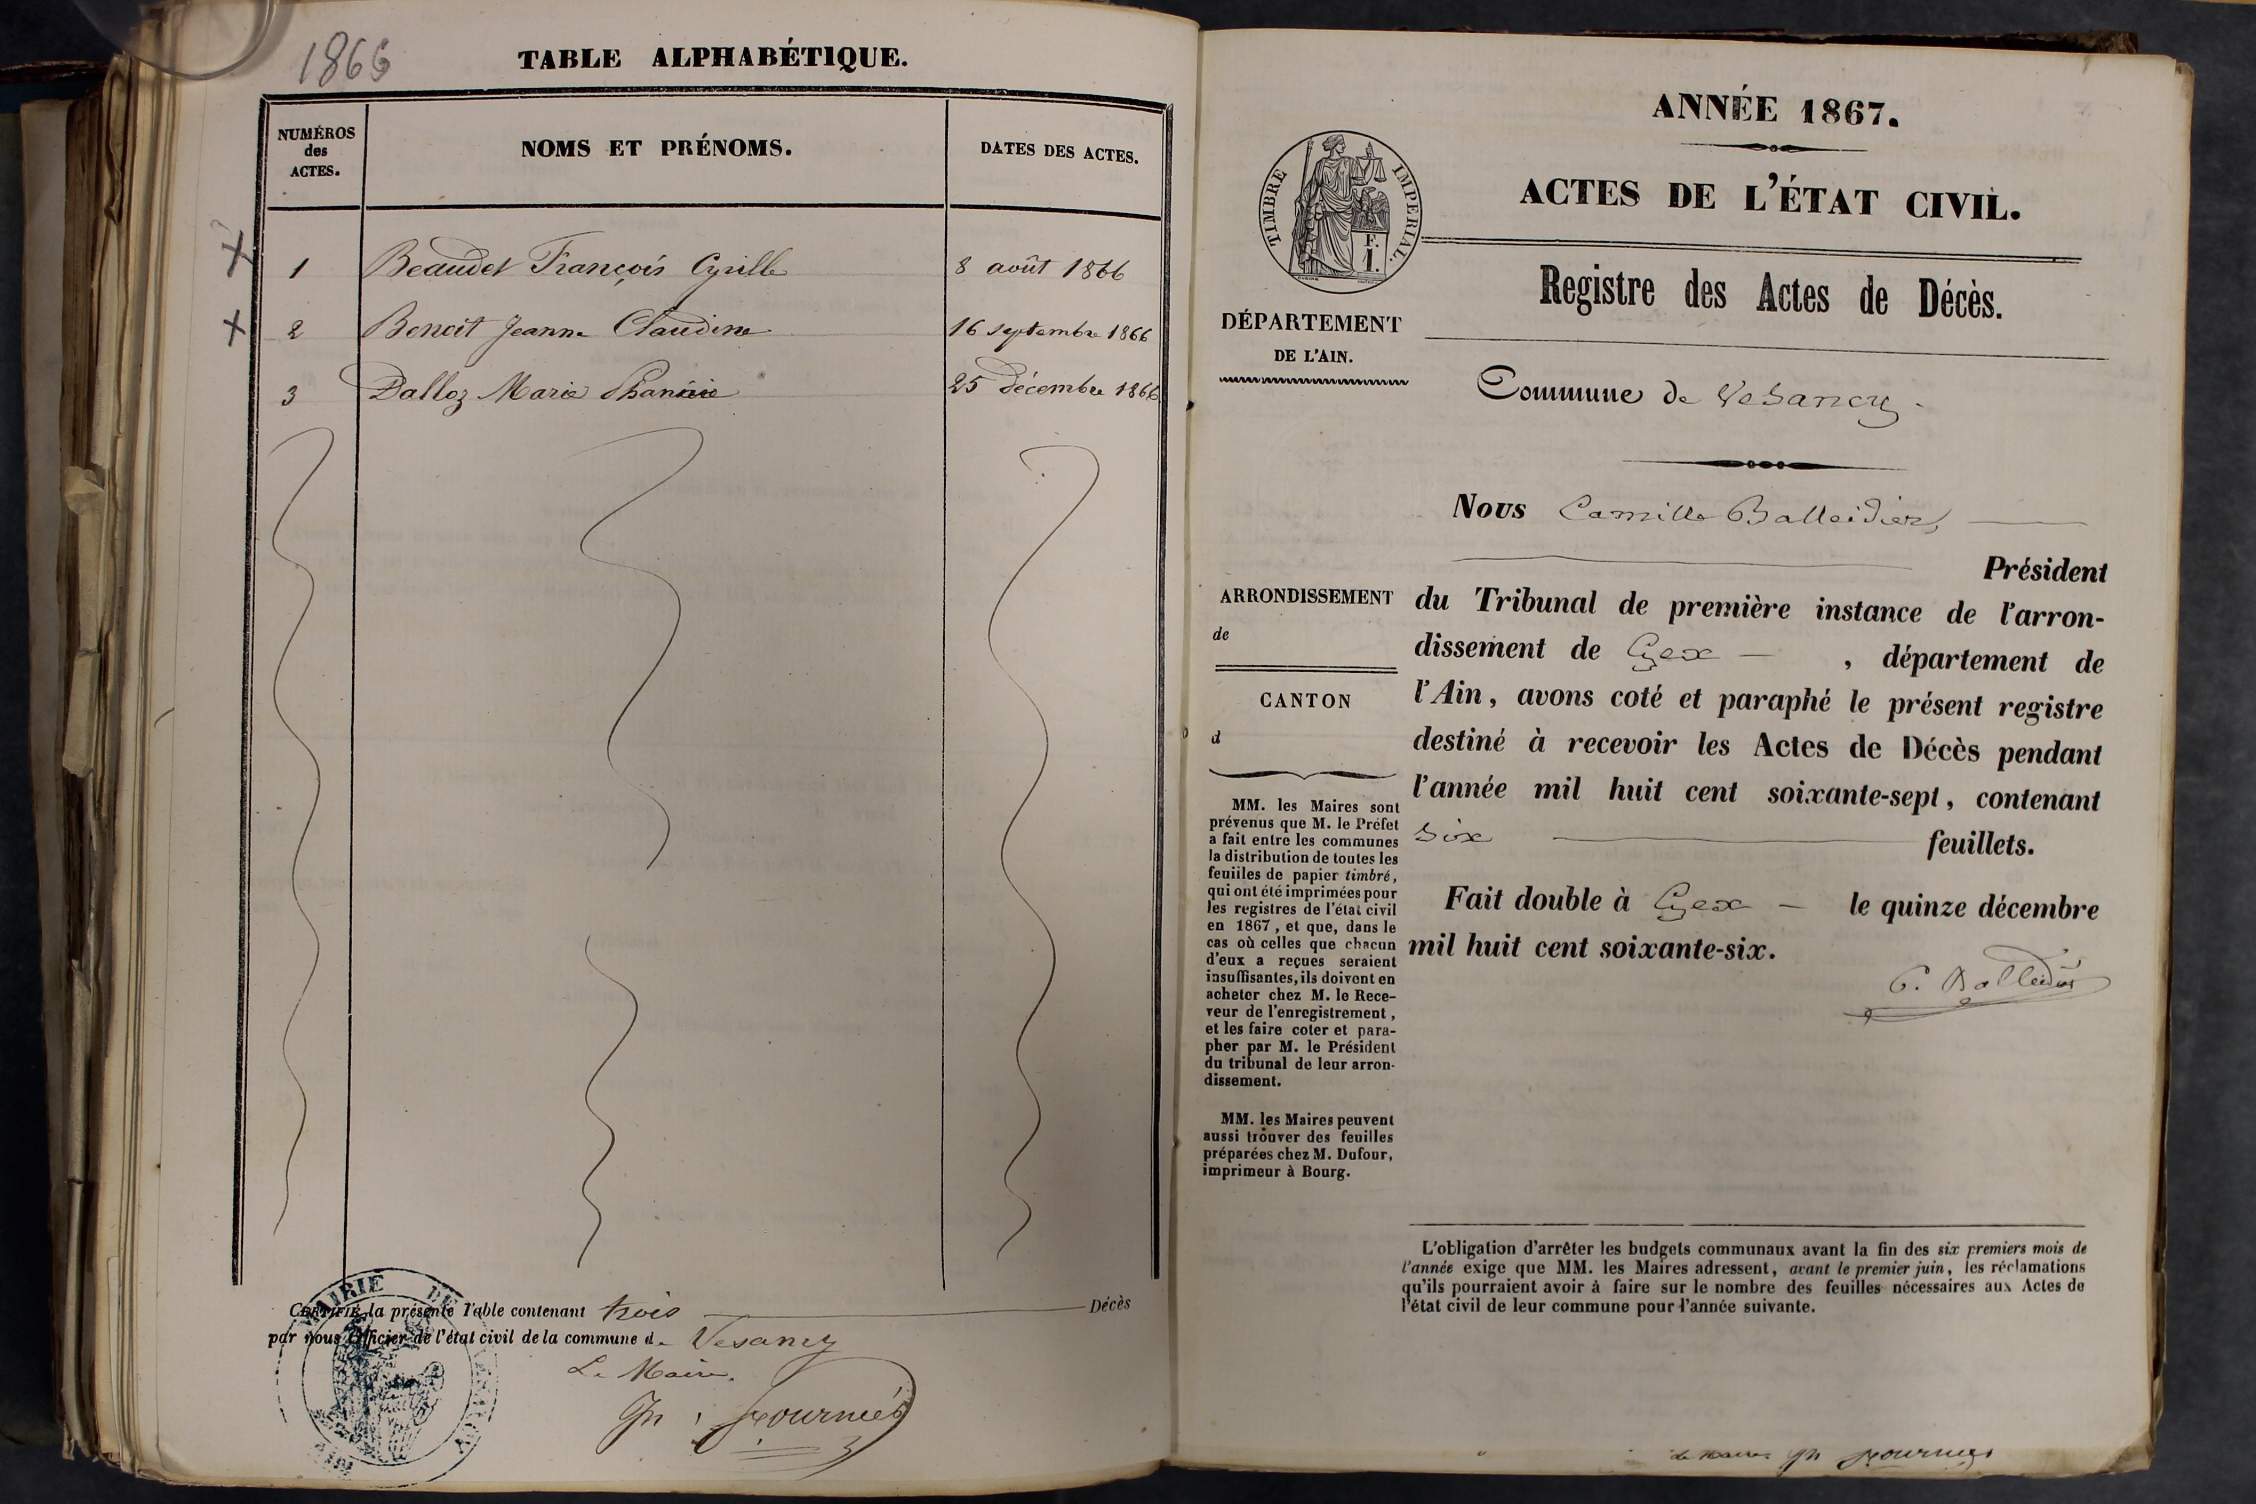 1866
TABLE ALPHABÉTIQUE.
NUMÉROS
des
ACTES.
NOMS ET PRÉNOMS.
DATES DES ACTES.
1 Beaudet François Cyrille 8 août 1866
2 Benoit Jeanne Claudine 16 septembre 1866
3 Dalloz Marie 25 décembre 1866
CERTIFIÉ la présente Table contenant trois Décès
par nous Officier de l'état civil de la commune de Vesancy
Le Maire.
Fournier
MAIRIE DE
AIN
ANNÉE 1867.
ACTES DE L'ÉTAT CIVIL.
TIMBRE IMPERIAL.
F.
1.
Registre des Actes de Décès.
DÉPARTEMENT
DE L'AIN.
Commune de Vesancy
Nous Camille Balleidier,
Président
du Tribunal de première instance de l'arron-
dissement de Gex , département de
l'Ain, avons coté et paraphé le présent registre
destiné à recevoir les Actes de Décès pendant
l'année mil huit cent soixante-sept, contenant
six feuillets.
Fait double à Gex le quinze décembre
mil huit cent soixante-six.
C. Balleidier
ARRONDISSEMENT
de
CANTON
d
MM. les Maires sont
prévenus que M. le Préfet
a fait entre les communes
la distribution de toutes les
feuilles de papier timbré,
qui ont été imprimées pour
les registres de l'état civil
en 1867, et que, dans le
cas où celles que chacun
d'eux a reçues seraient
insuffisantes, ils doivent en
acheter chez M. le Rece-
veur de l'enregistrement,
et les faire coter et para-
pher par M. le Président
du tribunal de leur arron-
dissement.
MM. les Maires peuvent
aussi trouver des feuilles
préparées chez M. Dufour,
imprimeur à Bourg.
L'obligation d'arrêter les budgets communaux avant la fin des six premiers mois de
l'année exige que MM. les Maires adressent, avant le premier juin, les réclamations
qu'ils pourraient avoir à faire sur le nombre des feuilles nécessaires aux Actes de
l'état civil de leur commune pour l'année suivante.
le maire Fournier